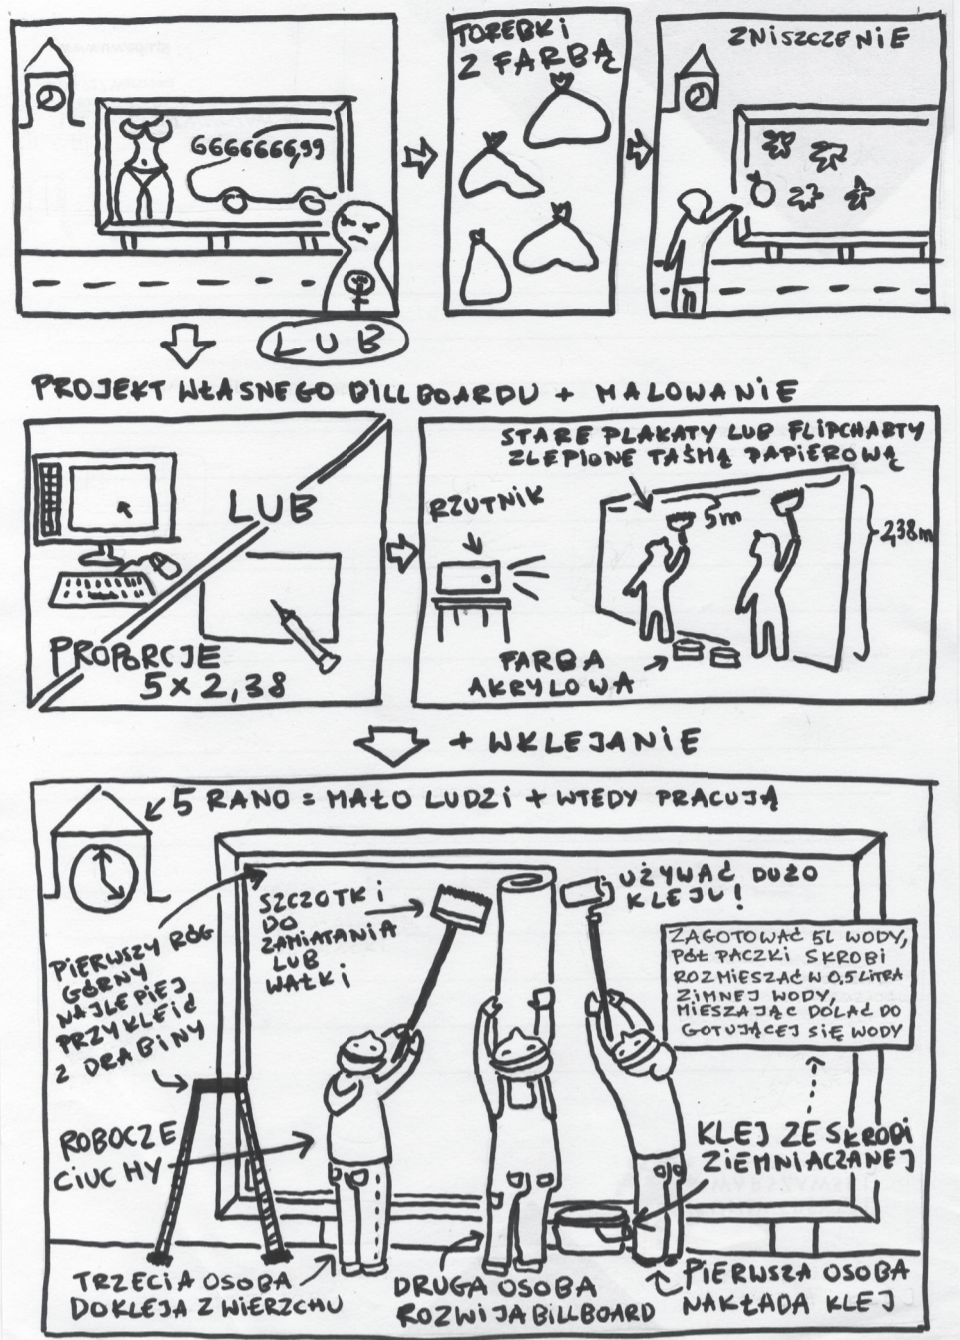 666666,99
TOREBKI
Z FARBĄ
ZNISZCZENIE
LUB
PROJEKT WŁASNEGO BILLBOARDU + MALOWANIE
LUB
PROPORCJE
5 × 2,38
STARE PLAKATY LUB FLIPCHARTY
ZLEPIONE TAŚMĄ PAPIEROWĄ
RZUTNIK
5m
2,38m
FARBA
AKRYLOWA
+ WKLEJANIE
5 RANO = MAŁO LUDZI + WTEDY PRACUJĄ
PIERWSZY RÓG
GÓRNY
NAJLEPIEJ
PRZYKLEIĆ
Z DRABINY
SZCZOTKI
DO
ZAMIATANIA
LUB
WAŁKI
UŻYWAĆ DUŻO
KLEJU!
ZAGOTOWAĆ 5L WODY,
PÓŁ PACZKI SKROBI
ROZMIESZAĆ W 0,5 LITRA
ZIMNEJ WODY,
MIESZAJĄC DOLAĆ DO
GOTUJĄCEJ SIĘ WODY
ROBOCZE
CIUCHY
KLEJ ZE SKROBI
ZIEMNIACZANEJ
TRZECIA OSOBA
DOKLEJA Z WIERZCHU
DRUGA OSOBA
ROZWIJA BILLBOARD
PIERWSZA OSOBA
NAKŁADA KLEJ